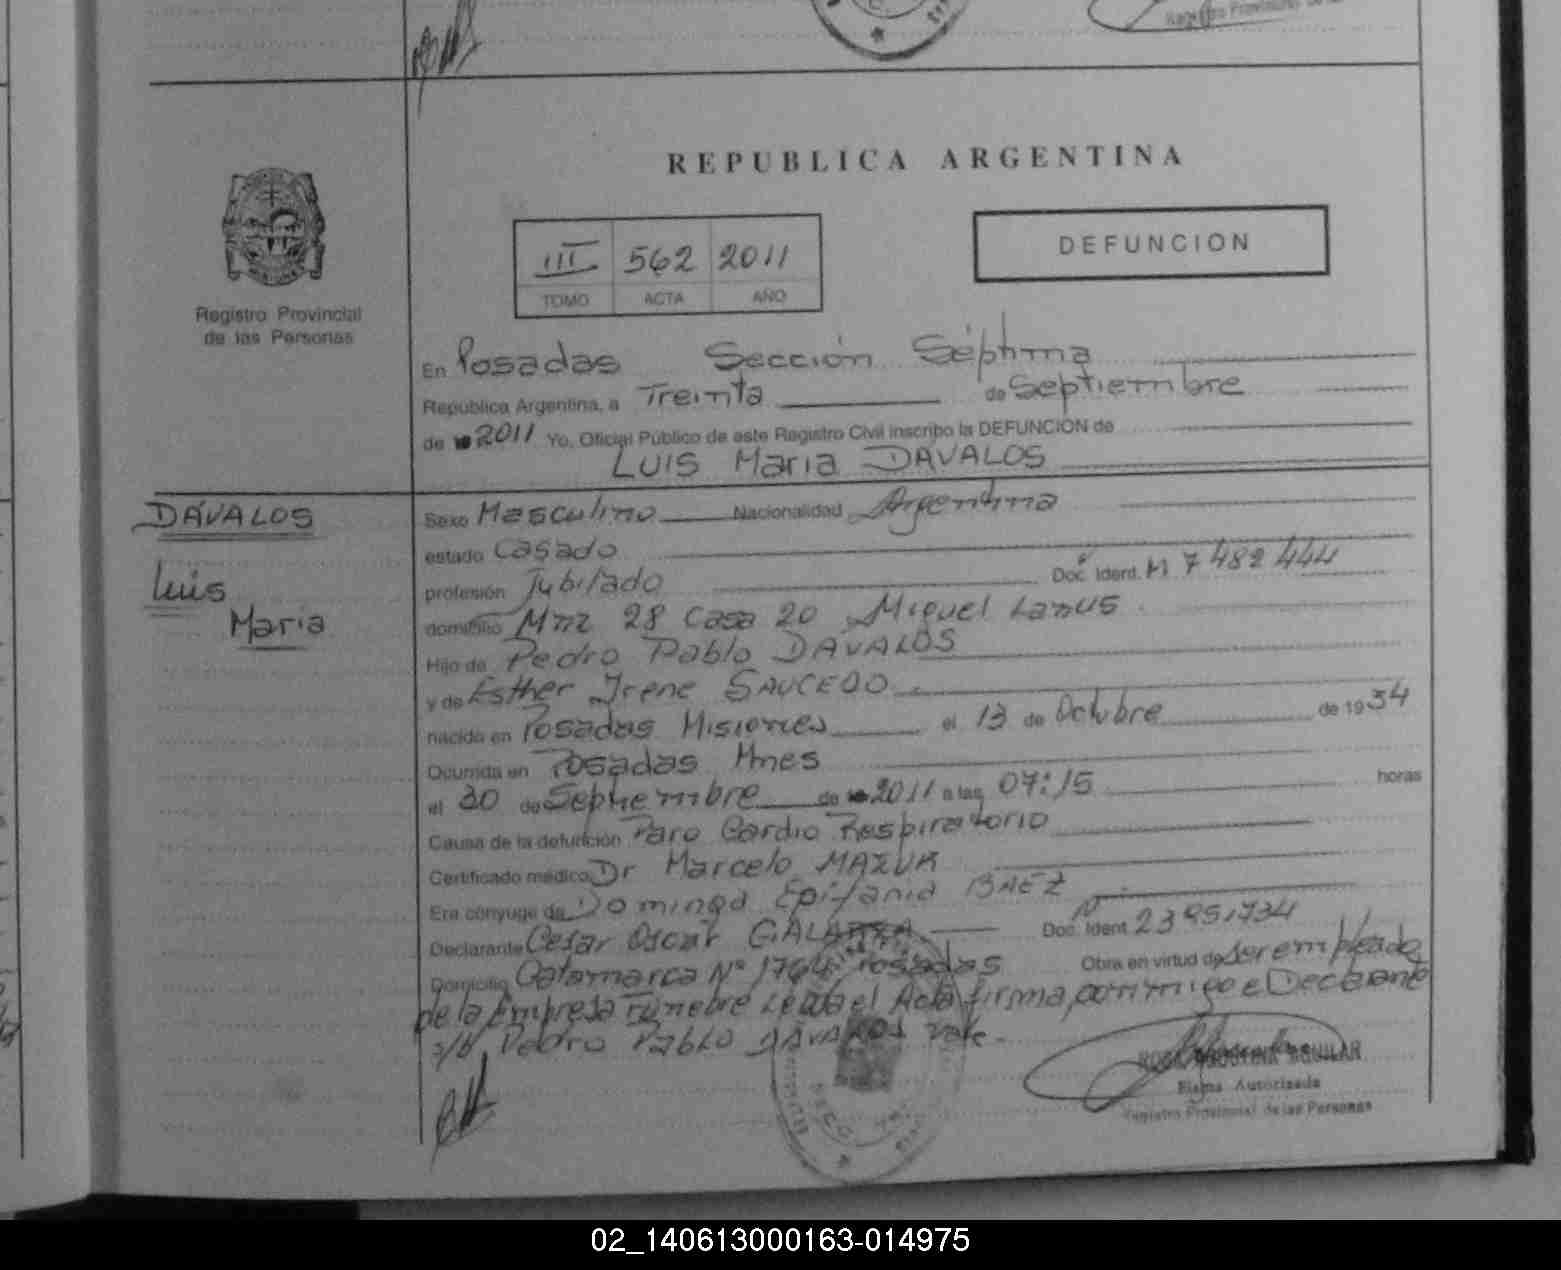 REPUBLICA ARGENTINA
III 562 2011
TOMO ACTA AÑO
DEFUNCION
Registro Provincial
de las Personas
En Posadas Sección Séptima
República Argentina, a Treinta de Septiembre
de 2011 Yo, Oficial Público de este Registro Civil inscribo la DEFUNCION de
LUIS Maria DÁVALOS
DÁVALOS
Luis
Maria
Sexo Masculino Nacionalidad Argentina
estado Casado
profesión Jubilado Doc. Ident. M 7 482 444
domicilio Mnz 28 Casa 20 Miguel Lanus
Hijo de Pedro Pablo DAVALOS
y de Esther Irene SAUCEDO
nacido en Posadas Misiones el 13 de Octubre de 1934
Ocurrida en Posadas Mnes
el 30 de Septiembre de 2011 a las 07:15 horas
Causa de la defunción Paro Cardio Respiratorio
Certificado médico Dr Marcelo MAZUR
Era cónyuge de Epifania BAEZ
Declarante Cesar Oscar Doc. Ident
Domicilio Catamarca N° Posadas Obra en virtud de ser empleado
de la Empresa Funebre Leida el Acta firma por mi go e Declarante
s/b Pedro Pablo DAVALOS vale.
AGUILAR
Firma Autorizada
Registro Provincial de las Personas
02_140613000163-014975